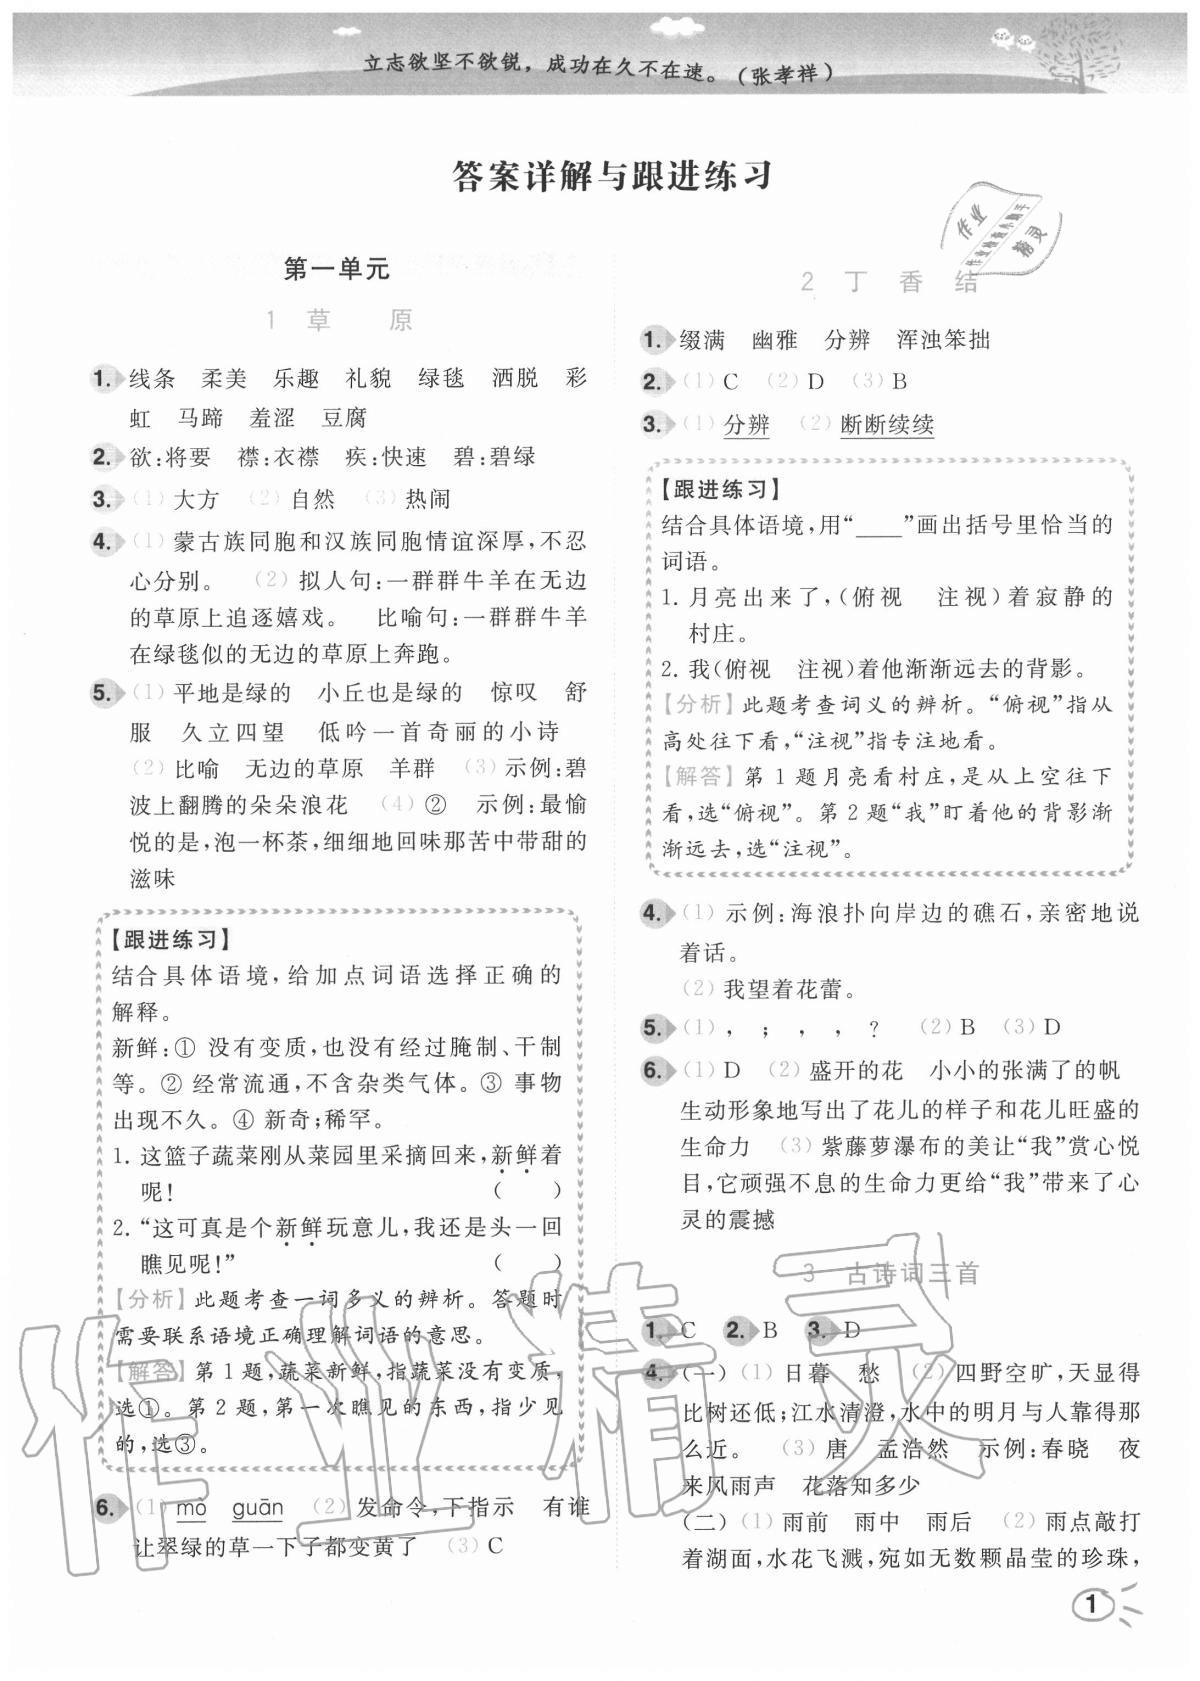 立志欲坚不欲锐，成功在久不在速。（张孝祥）
答案详解与跟进练习
第一单元
1 草 原
1. 线条 柔美 乐趣 礼貌 绿毯 洒脱 彩
虹 马蹄 羞涩 豆腐
2. 欲:将要 襟:衣襟 疾:快速 碧:碧绿
3. (1)大方 (2)自然 (3)热闹
4. (1)蒙古族同胞和汉族同胞情谊深厚,不忍
心分别。 (2)拟人句:一群群牛羊在无边
的草原上追逐嬉戏。 比喻句:一群群牛羊
在绿毯似的无边的草原上奔跑。
5. (1)平地是绿的 小丘也是绿的 惊叹 舒
服 久立四望 低吟一首奇丽的小诗
(2)比喻 无边的草原 羊群 (3)示例:碧
波上翻腾的朵朵浪花 (4)② 示例:最愉
悦的是,泡一杯茶,细细地回味那苦中带甜的
滋味
【跟进练习】
结合具体语境,给加点词语选择正确的
解释。
新鲜:① 没有变质,也没有经过腌制、干制
等。② 经常流通,不含杂类气体。③ 事物
出现不久。④ 新奇;稀罕。
1. 这篮子蔬菜刚从菜园里采摘回来,新鲜着
呢! ( )
2. “这可真是个新鲜玩意儿,我还是头一回
瞧见呢!” ( )
【分析】此题考查一词多义的辨析。答题时
需要联系语境正确理解词语的意思。
【解答】第1题,蔬菜新鲜,指蔬菜没有变质,
选①。第2题,第一次瞧见的东西,指少见
的,选③。
6. (1)mò guān (2)发命令,下指示 有谁
让翠绿的草一下子都变黄了 (3)C
作业
作业检查小助手
精灵
2 丁 香 结
1. 缀满 幽雅 分辨 浑浊笨拙
2. (1)C (2)D (3)B
3. (1)分辨 (2)断断续续
【跟进练习】
结合具体语境,用“____”画出括号里恰当的
词语。
1. 月亮出来了,(俯视 注视)着寂静的
村庄。
2. 我(俯视 注视)着他渐渐远去的背影。
【分析】此题考查词义的辨析。“俯视”指从
高处往下看,“注视”指专注地看。
【解答】第1题月亮看村庄,是从上空往下
看,选“俯视”。第2题“我”盯着他的背影渐
渐远去,选“注视”。
4. (1)示例:海浪扑向岸边的礁石,亲密地说
着话。
(2)我望着花蕾。
5. (1), ; , , ? (2)B (3)D
6. (1)D (2)盛开的花 小小的张满了的帆
生动形象地写出了花儿的样子和花儿旺盛的
生命力 (3)紫藤萝瀑布的美让“我”赏心悦
目,它顽强不息的生命力更给“我”带来了心
灵的震撼
3 古诗词三首
1. C 2. B 3. D
4. (一)(1)日暮 愁 (2)四野空旷,天显得
比树还低;江水清澄,水中的明月与人靠得那
么近。 (3)唐 孟浩然 示例:春晓 夜
来风雨声 花落知多少
(二)(1)雨前 雨中 雨后 (2)雨点敲打
着湖面,水花飞溅,宛如无数颗晶莹的珍珠,
作业精灵
1